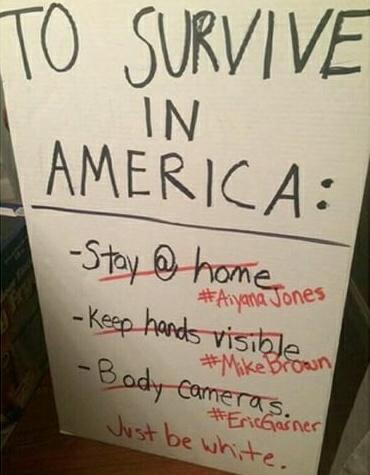 TO SURVIVE
IN
AMERICA:
-Stay @ home
#AiyanaJones
-Keep hands visible
#MikeBrown
-Body cameras.
#EricGarner
Just be white.